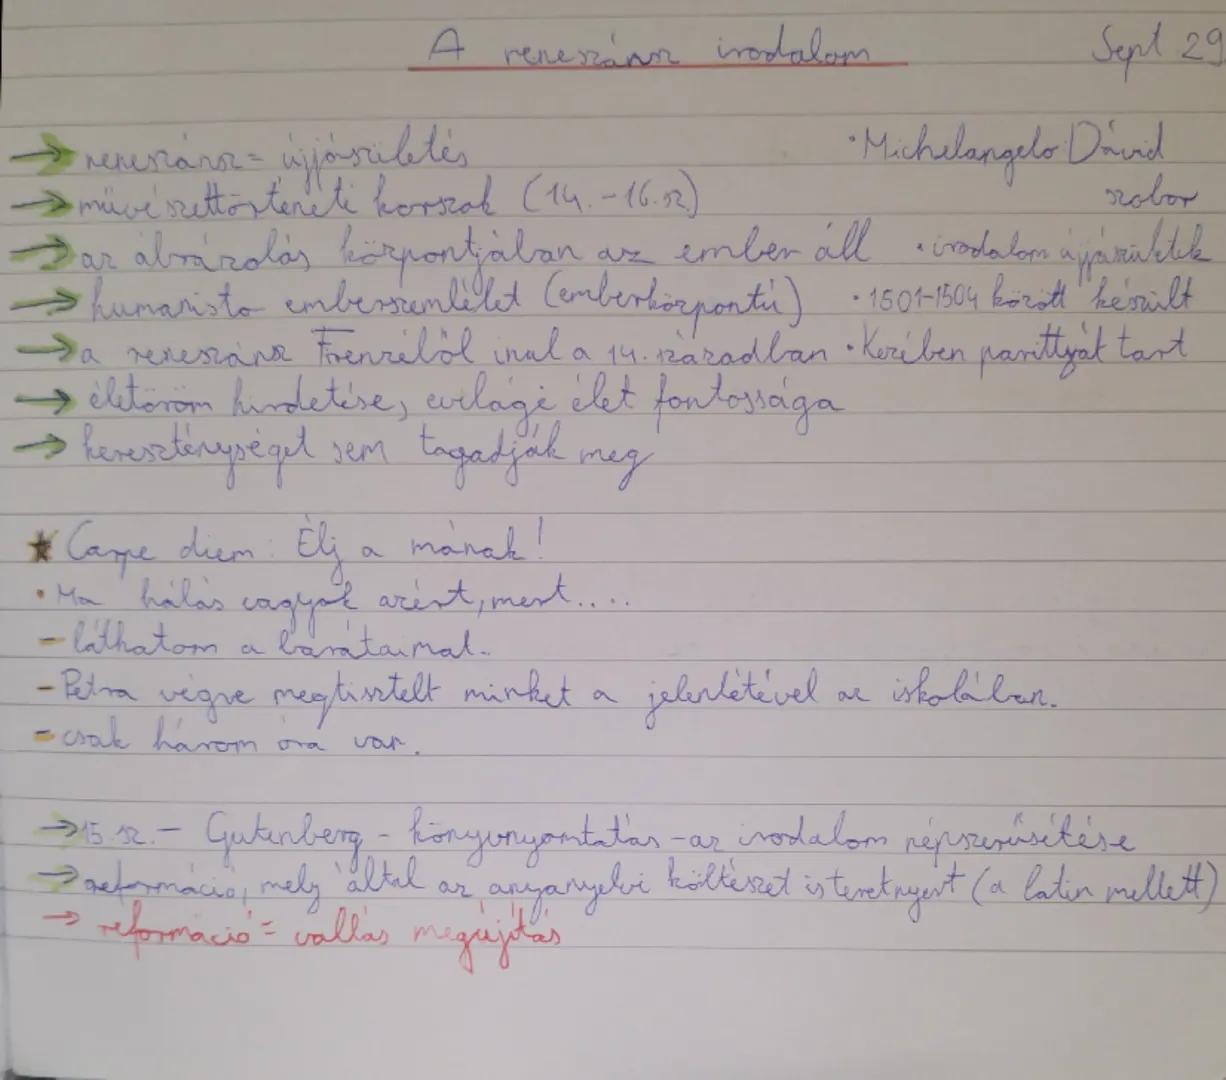 A reneszánsz irodalom Sept 29
→ reneszánsz = újjászületés
→ művészettörténeti korszak (14.-16.sz)
→ az ábrázolás központjában az ember áll
→ humanista emberszemlélet (emberközpontú)
→ a reneszánsz Firenzéből indul a 14. században
→ életöröm hirdetése, evilági élet fontossága
→ kereszténységet sem tagadják meg
• Michelangelo Dávid
szobor
• irodalom újjászületek
• 1501-1504 között készült
• Kezében parittyát tart
★ Carpe diem: Élj a mának!
• Ma hálás vagyok azért, mert....
- láthatom a barátaimat.
- Petra végre megtisztelt minket a jelenlétével az iskolában.
- csak három óra van.
→ 15.sz. - Gutenberg - könyvnyomtatás - az irodalom népszerűsítése
→ reformáció, mely által az anyanyelvi költészet is teret nyert (a latin mellett)
→ reformáció = vallás megújítás